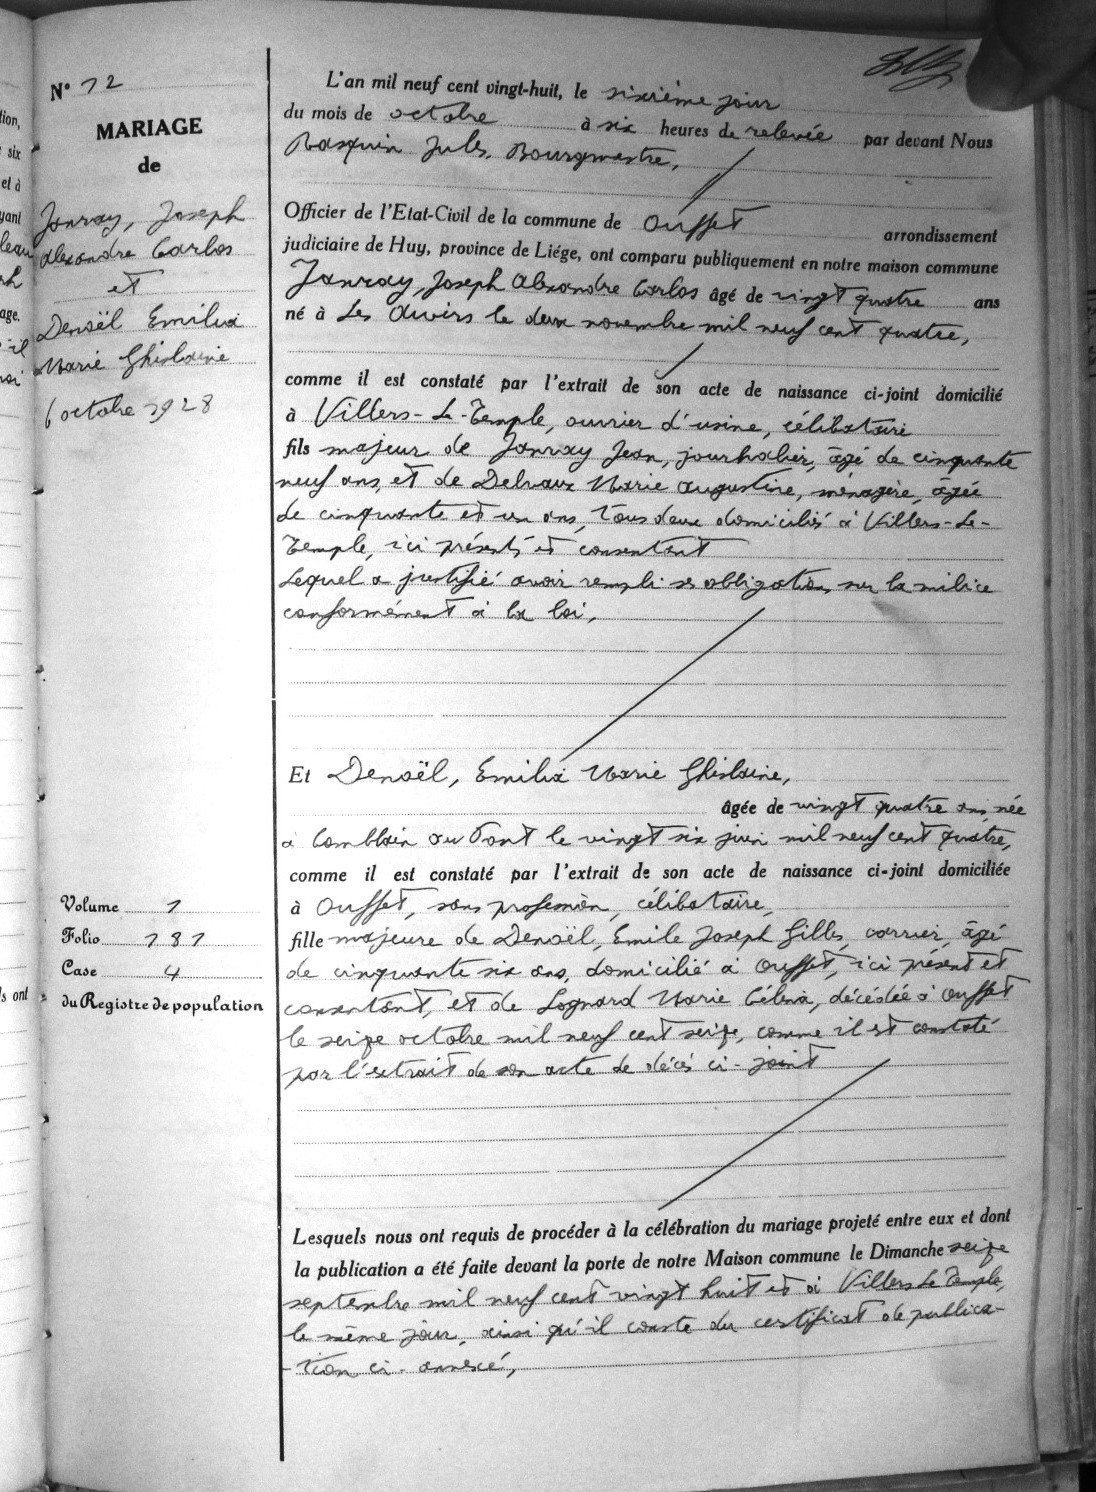 N° 12
MARIAGE
de
Janray, Joseph
Alexandre Carlos
et
Denoël Emilia
Marie Ghislaine
6 octobre 1928
Volume 1
Folio 181
Case 4
du Registre de population
L'an mil neuf cent vingt-huit, le sixième jour
du mois de octobre à six heures de relevée par devant Nous
Rasquin Jules, Bourgmestre,
Officier de l'Etat-Civil de la commune de Ouffet arrondissement
judiciaire de Huy, province de Liége, ont comparu publiquement en notre maison commune
Janray, Joseph Alexandre Carlos âgé de vingt quatre ans
né à Les Avins le deux novembre mil neuf cent quatre,
comme il est constaté par l'extrait de son acte de naissance ci-joint domicilié
à Villers-Le-Temple, ouvrier d'usine, célibataire
fils majeur de Janray Jean, journalier, âgé de cinquante
neuf ans, et de Delvaux Marie Augustine, ménagère, âgée
de cinquante et un ans, tous deux domiciliés à Villers-Le-
Temple, ici présents et consentant
Lequel a justifié avoir rempli ses obligations sur la milice
conformément à la loi,
Et Denoël, Emilia Marie Ghislaine,
âgée de vingt quatre ans, née
à Comblain au Pont le vingt six juin mil neuf cent quatre,
comme il est constaté par l'extrait de son acte de naissance ci-joint domiciliée
à Ouffet, sans profession, célibataire,
fille majeure de Denoël, Emile Joseph Gilles, carrier, âgé
de cinquante six ans, domicilié à Ouffet, ici présent et
consentant, et de Lognard Marie Célina, décédée à Ouffet
le seize octobre mil neuf cent seize, comme il est constaté
par l'extrait de son acte de décès ci-joint
Lesquels nous ont requis de procéder à la célébration du mariage projeté entre eux et dont
la publication a été faite devant la porte de notre Maison commune le Dimanche seize
septembre mil neuf cent vingt huit et à Villers Le Temple,
le même jour, ainsi qu'il conste du certificat de publica-
-tion ci-annexé,